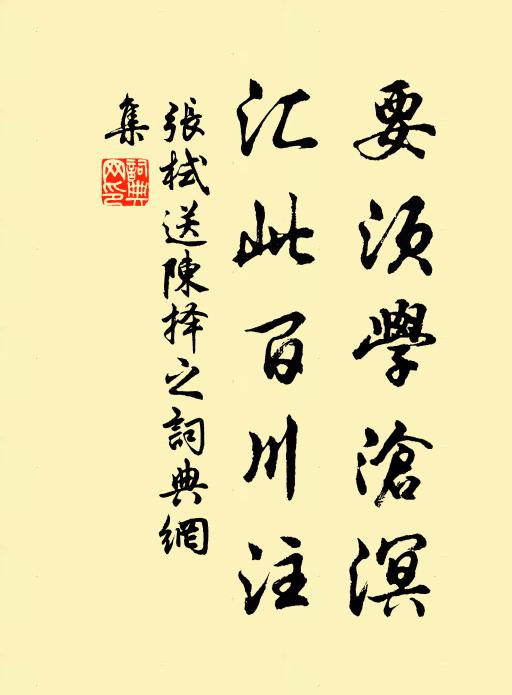 要须學滄溟
汇此百川注
張栻送陳择之詞典網
集
詞典網印